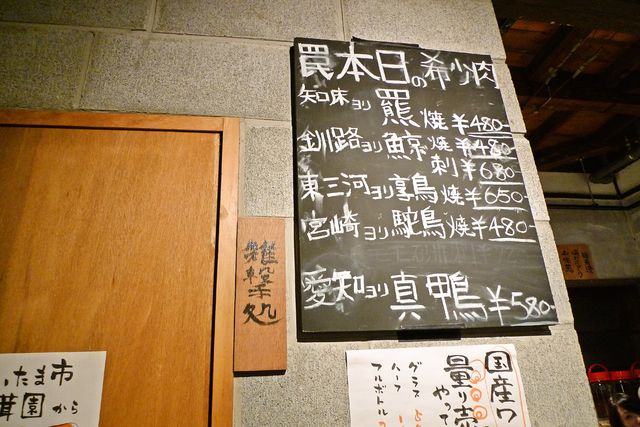 罠本日の希少肉
知床ヨリ羆焼¥480-
釧路ヨリ鯨焼¥480-
刺¥680-
東三河ヨリ鶉焼¥650-
宮崎ヨリ駝鳥焼¥480-
愛知ヨリ真鴨¥580-
雉撃処
いたま市
茸園から
国産ワ
量り売
やって
グラス
ハーフ
フルボトル